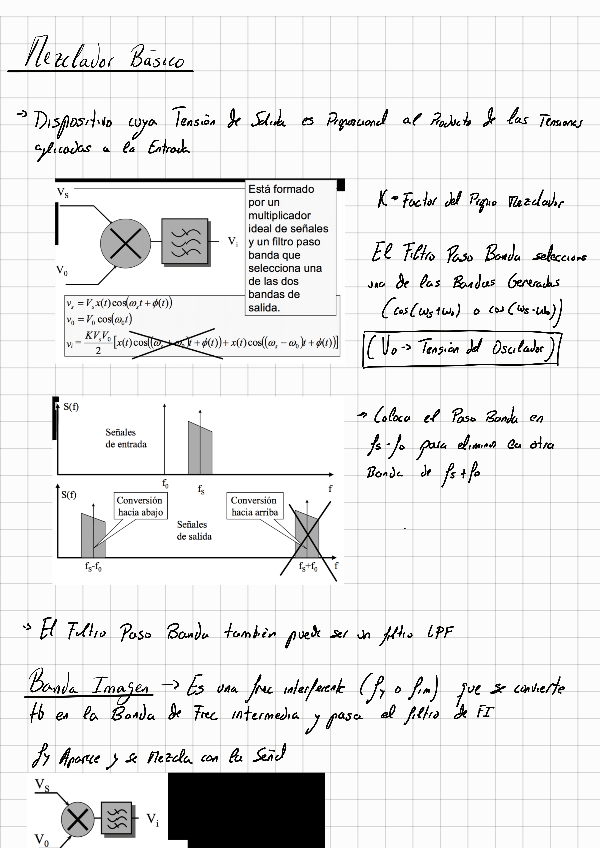 Mezclador Básico
→ Dispositivo cuya Tensión de Salida es Proporcional al Producto de las Tensiones
aplicadas a la Entrada
V_s
V_0
V_i
Está formado
por un
multiplicador
ideal de señales
y un filtro paso
banda que
selecciona una
de las dos
bandas de
salida.
v_s = V_s x(t) cos(ω_s t + ϕ(t))
v_0 = V_0 cos(ω_0 t)
v_i = KV_sV_0/2 [x(t) cos((ω_s + ω_0)t + ϕ(t)) + x(t) cos((ω_s − ω_0)t + ϕ(t))]
K = Factor del Propio Mezclador
El Filtro Paso Banda selecciona
una de las Bandas Generadas
(cos(ws+wo) o cos(ws-wo))
(Vo → Tensión del Oscilador)
S(f)
Señales
de entrada
f_0
f_S
f
S(f)
Conversión
hacia abajo
Señales
de salida
Conversión
hacia arriba
f_S-f_0
f_S+f_0
f
→ Coloca el Paso Banda en
fs-fo para eliminar la otra
Banda de fs+fo
→ El Filtro Paso Banda también puede ser un filtro LPF
Banda Imagen → Es una frec interferente (fy o fim) que se convierte
tb en la Banda de Frec intermedia y pasa el filtro de FI
fy Aparece y se Mezcla con la Señal
V_S
V_0
V_i